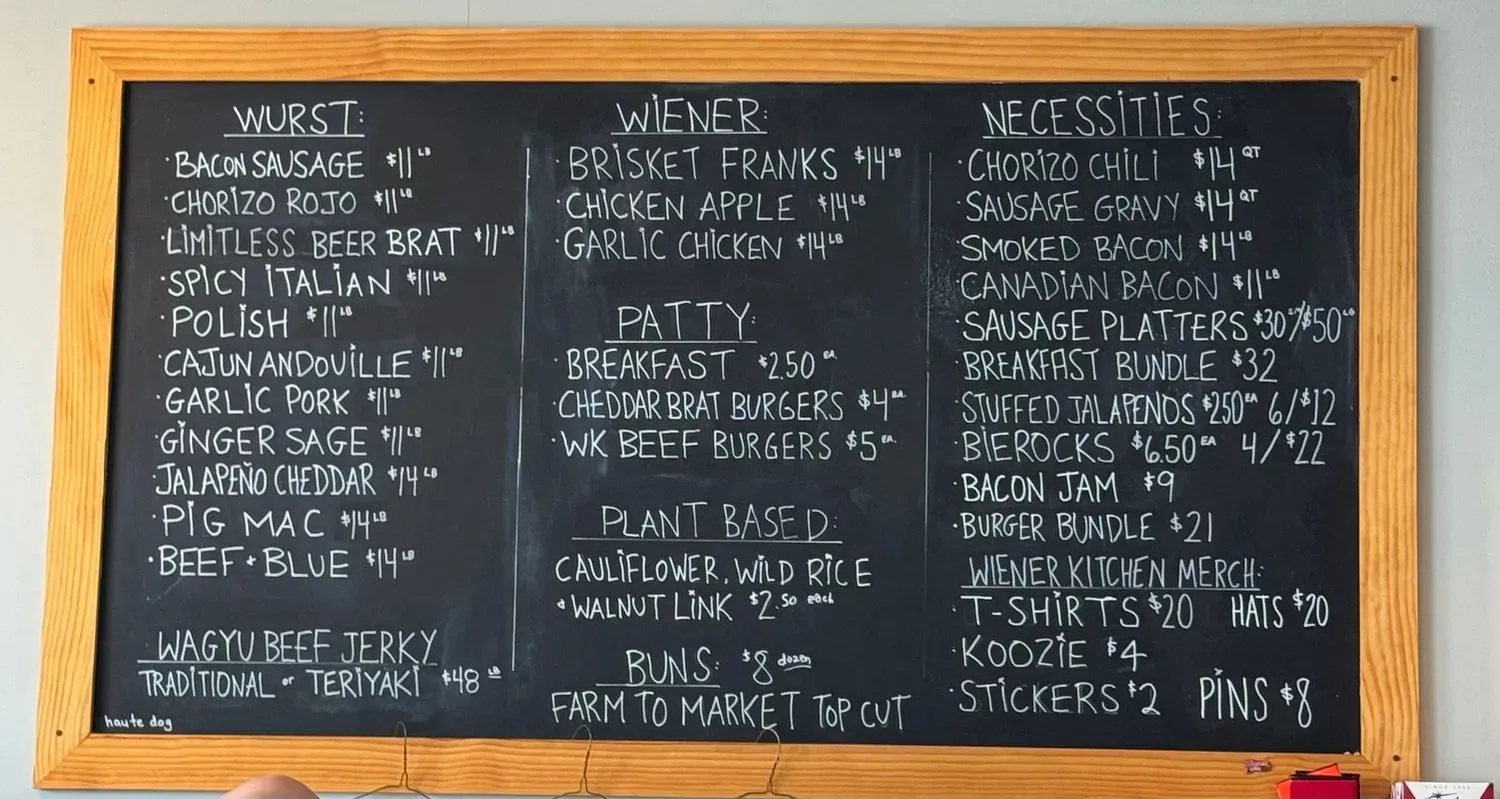 WURST:
·BACON SAUSAGE $11 LB
·CHORIZO ROJO $11 LB
·LIMITLESS BEER BRAT $11 LB
·SPICY ITALIAN $11 LB
·POLISH $11 LB
·CAJUN ANDOUILLE $11 LB
·GARLIC PORK $11 LB
·GINGER SAGE $11 LB
·JALAPEÑO CHEDDAR $14 LB
·PIG MAC $14 LB
·BEEF + BLUE $14 LB
WAGYU BEEF JERKY
TRADITIONAL or TERIYAKI $48 LB
haute dog
WIENER:
·BRISKET FRANKS $14 LB
·CHICKEN APPLE $14 LB
·GARLIC CHICKEN $14 LB
PATTY:
·BREAKFAST $2.50 EA.
·CHEDDAR BRAT BURGERS $4 EA.
·WK BEEF BURGERS $5 EA.
PLANT BASED:
CAULIFLOWER, WILD RICE
& WALNUT LINK $2.50 each
BUNS: $8 dozen
FARM TO MARKET TOP CUT
NECESSITIES:
·CHORIZO CHILI $14 QT
·SAUSAGE GRAVY $14 QT
·SMOKED BACON $14 LB
·CANADIAN BACON $11 LB
·SAUSAGE PLATTERS $30 S/M /$50 LG
·BREAKFAST BUNDLE $32
·STUFFED JALAPENOS $250 EA 6/$12
·BIEROCKS $6.50 EA 4/$22
·BACON JAM $9
·BURGER BUNDLE $21
WIENER KITCHEN MERCH:
·T-SHIRTS $20 HATS $20
·KOOZIE $4
·STICKERS $2 PINS $8